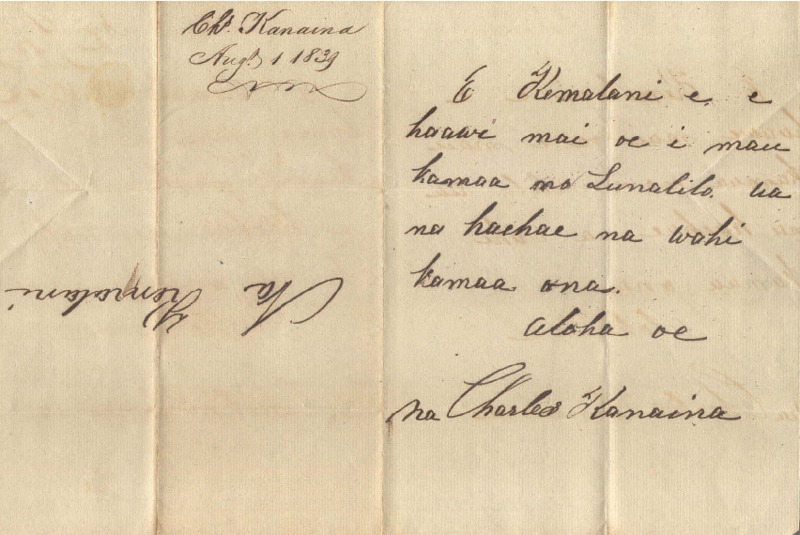 Chs. Kanaina
Augt. 1 1839
E Kemalani e, e
haawi mai oe i mau
kamaa no Lunalilo. ua
na haehae na wahi
kamaa ona.
Aloha oe
na Charles Kanaina
Na Kemalani